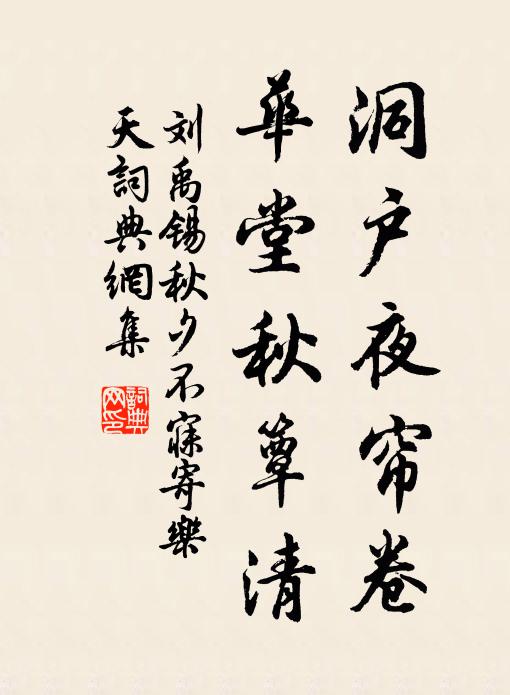 洞户夜帘卷
華堂秋簟清
刘禹锡秋夕不寐寄樂
天詞典網集
詞典
网印